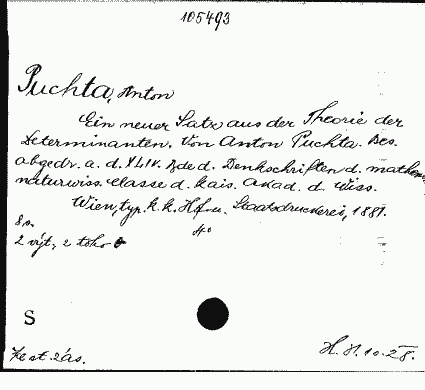 105493
Puchta, Anton
Ein neuer Satz aus der Theorie der
Determinanten. Von Anton Puchta. Bes.
abgedr. a. d. XLIV. Bde d. Denkschriften d. mathem.
naturwiss. Classe d. kais. Akad. d. Wiss.
Wien, typ. k. k. Hof u. Staatsdruckerei, 1881.
8 s. 4°
2 výt. z toho
S
Ze st. zás.
H. H. 10. 28.